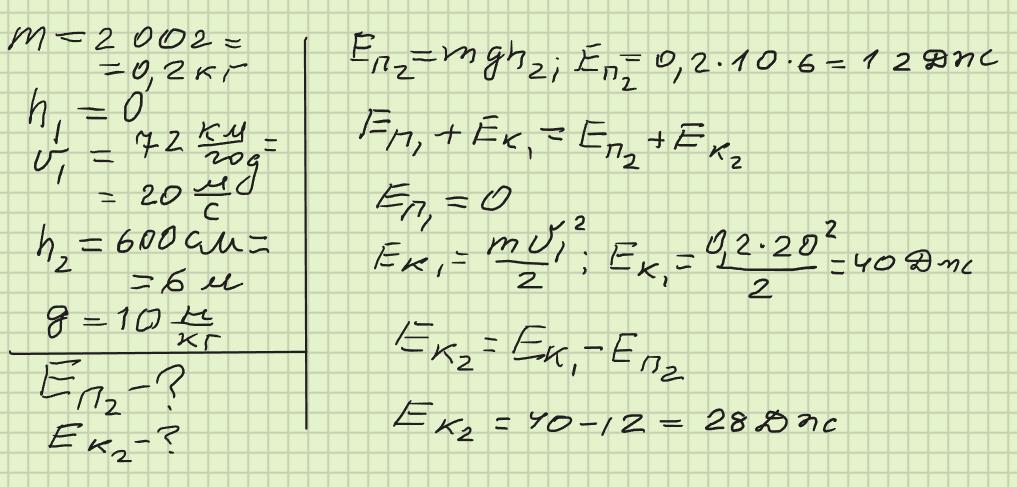 m = 200г =
= 0,2 кг
h₁ = 0
υ₁ = 72 км/год =
= 20 м/с
h₂ = 600 см =
= 6 м
g = 10 Н/кг
Eп₂ - ?
Eк₂ - ?
Eп₂ = mgh₂; Eп₂ = 0,2·10·6 = 12 Дж
Eп₁ + Eк₁ = Eп₂ + Eк₂
Eп₁ = 0
Eк₁ = mυ₁²/2; Eк₁ = 0,2·20²/2 = 40 Дж
Eк₂ = Eк₁ - Eп₂
Eк₂ = 40 - 12 = 28 Дж